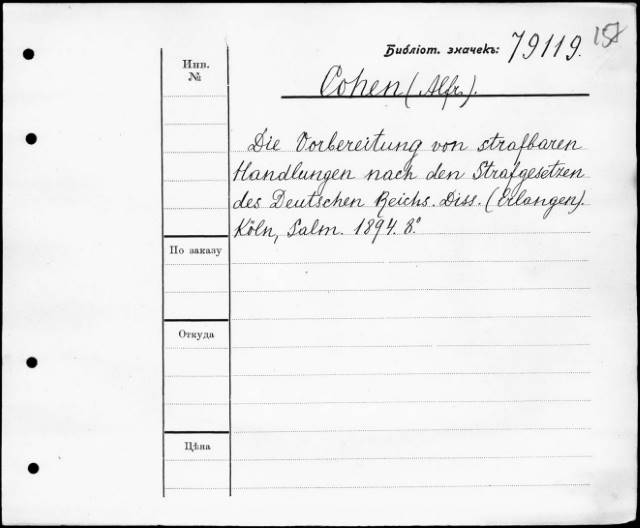 Библіот. значекъ: 79119.
Инв.
№
Cohen (Alfr.).
Die Vorbereitung von strafbaren
Handlungen nach den Strafgesetzen
des Deutschen Reichs. Diss. (Erlangen).
Köln, Salm. 1894. 8.°
По заказу
Откуда
Цѣна